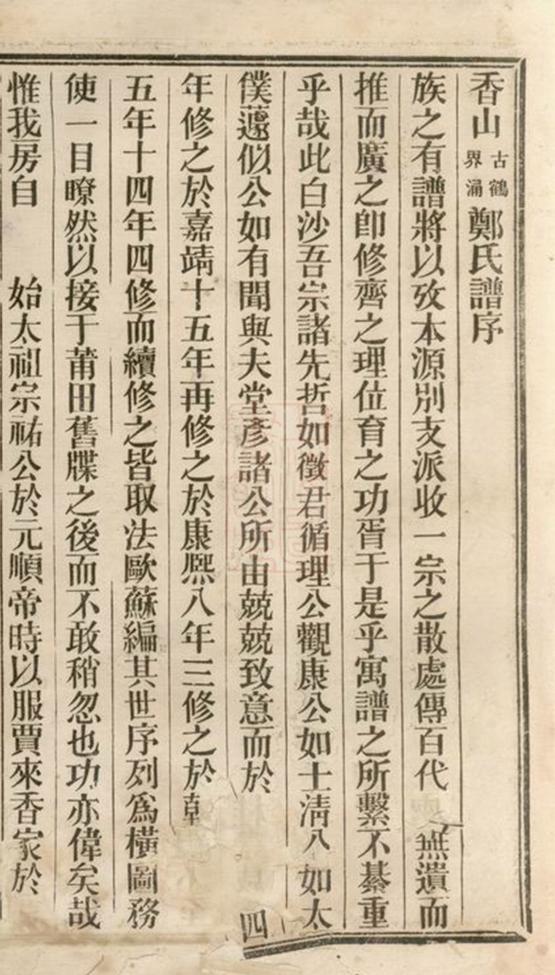 香山古鶴界涌鄭氏譜序
族之有譜將以攷本源別支派收一宗之散處傳百代 無遺而
推而廣之卽修齊之理位育之功胥于是乎寓譜之所繫不綦重
乎哉此白沙吾宗諸先哲如徵君循理公觀康公如士淸公 如太
僕薳似公如有聞與夫堂彥諸公所由兢兢致意而於
年修之於嘉靖十五年再修之於康熙八年三修之於
五年十四年四修而續修之皆取法歐蘇編其世序列爲橫圖務
使一目暸然以接于莆田舊牒之後而不敢稍忽也功亦偉矣哉
惟我房自 始太祖宗祐公於元順帝時以服賈來香家於
四